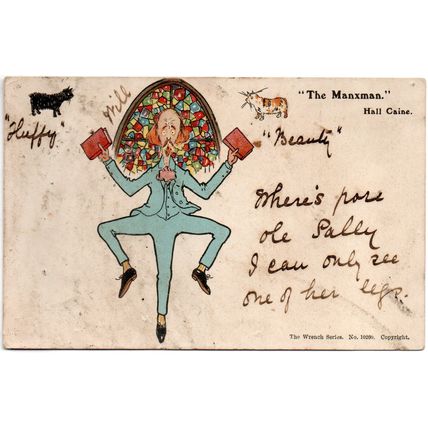 "The Manxman."
Hall Caine.
Will
"Fluffy"
"Beauty"
Where's pore
ole Sally
I can only see
one of her legs.
The Wrench Series. No. 10299. Copyright.